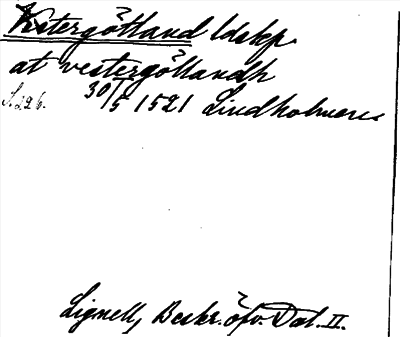 Västergötland ldskp.
at vestergötlandh
S. 226. 30/5 1521 Lindholmens
Lignell, Beskr. öfv. Dal. II.